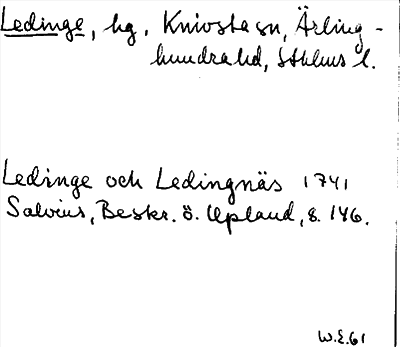 Ledinge, hg, Knivsta sn, Ärling-
hundra hd, Sthlms l.
Ledinge och Ledingnäs 1741
Salvius, Beskr. ö. Upland, s. 146.
W.E.61